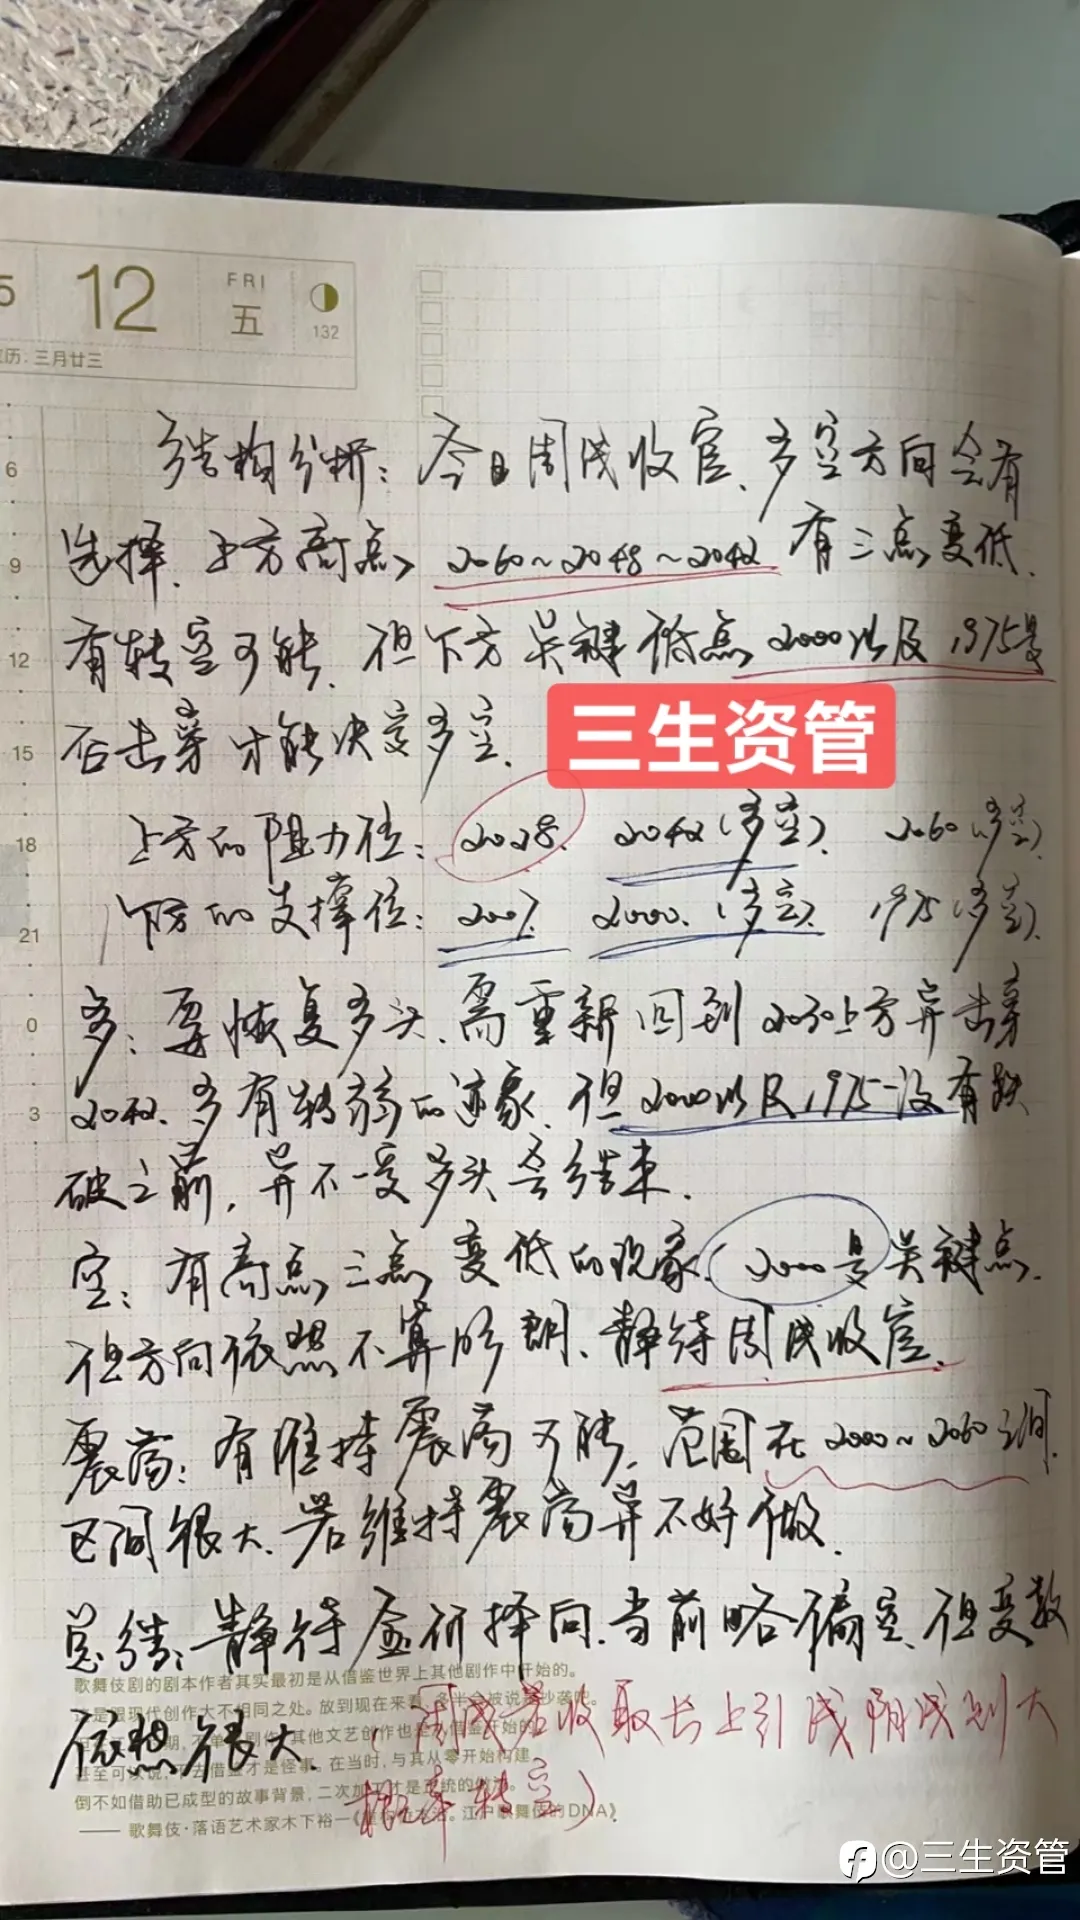 5 12 FRI 五 132
历：三月廿三
结构分析：今日周线收官、多空方向会有
选择、上方高点 2060~2048~2042 有三点变低、
有转空可能、但下方关键低点 2000以及1975是
否击穿才能决定多空、
三生资管
上方的阻力位：2028、 2042（多空）、 2060（多空）、
下方的支撑位：2007、 2000、（多空）、 1975（多空）、
多：要恢复多头、需重新回到2030上方并击穿
2042、多有转弱的迹象、但2000以及1975没有跌
破之前，并不一定多头会结束、
空：有高点三点变低的现象、2000是关键点、
但方向依然不算明朗、静待周线收官、
震荡：有维持震荡可能、范围在2000~2060之间、
区间很大、若维持震荡并不好做、
总结：静待金价择向、当前略偏空、但变数
依然很大、（周线若收取长上引线阴线则大
概率转空）
歌舞伎剧的剧本作者其实最初是从借鉴世界上其他剧作中开始的。
是跟现代创作大不相同之处。放到现在来看，多半会被说是抄袭吧。
其他文艺创作也是从借鉴开始的
甚至可以说，不去借鉴才是怪事。在当时，与其从零开始构建，
倒不如借助已成型的故事背景，二次加工才是正统的做法。
—— 歌舞伎·落语艺术家木下裕一《江户歌舞伎的DNA》
6
9
12
15
18
21
0
3
@三生资管